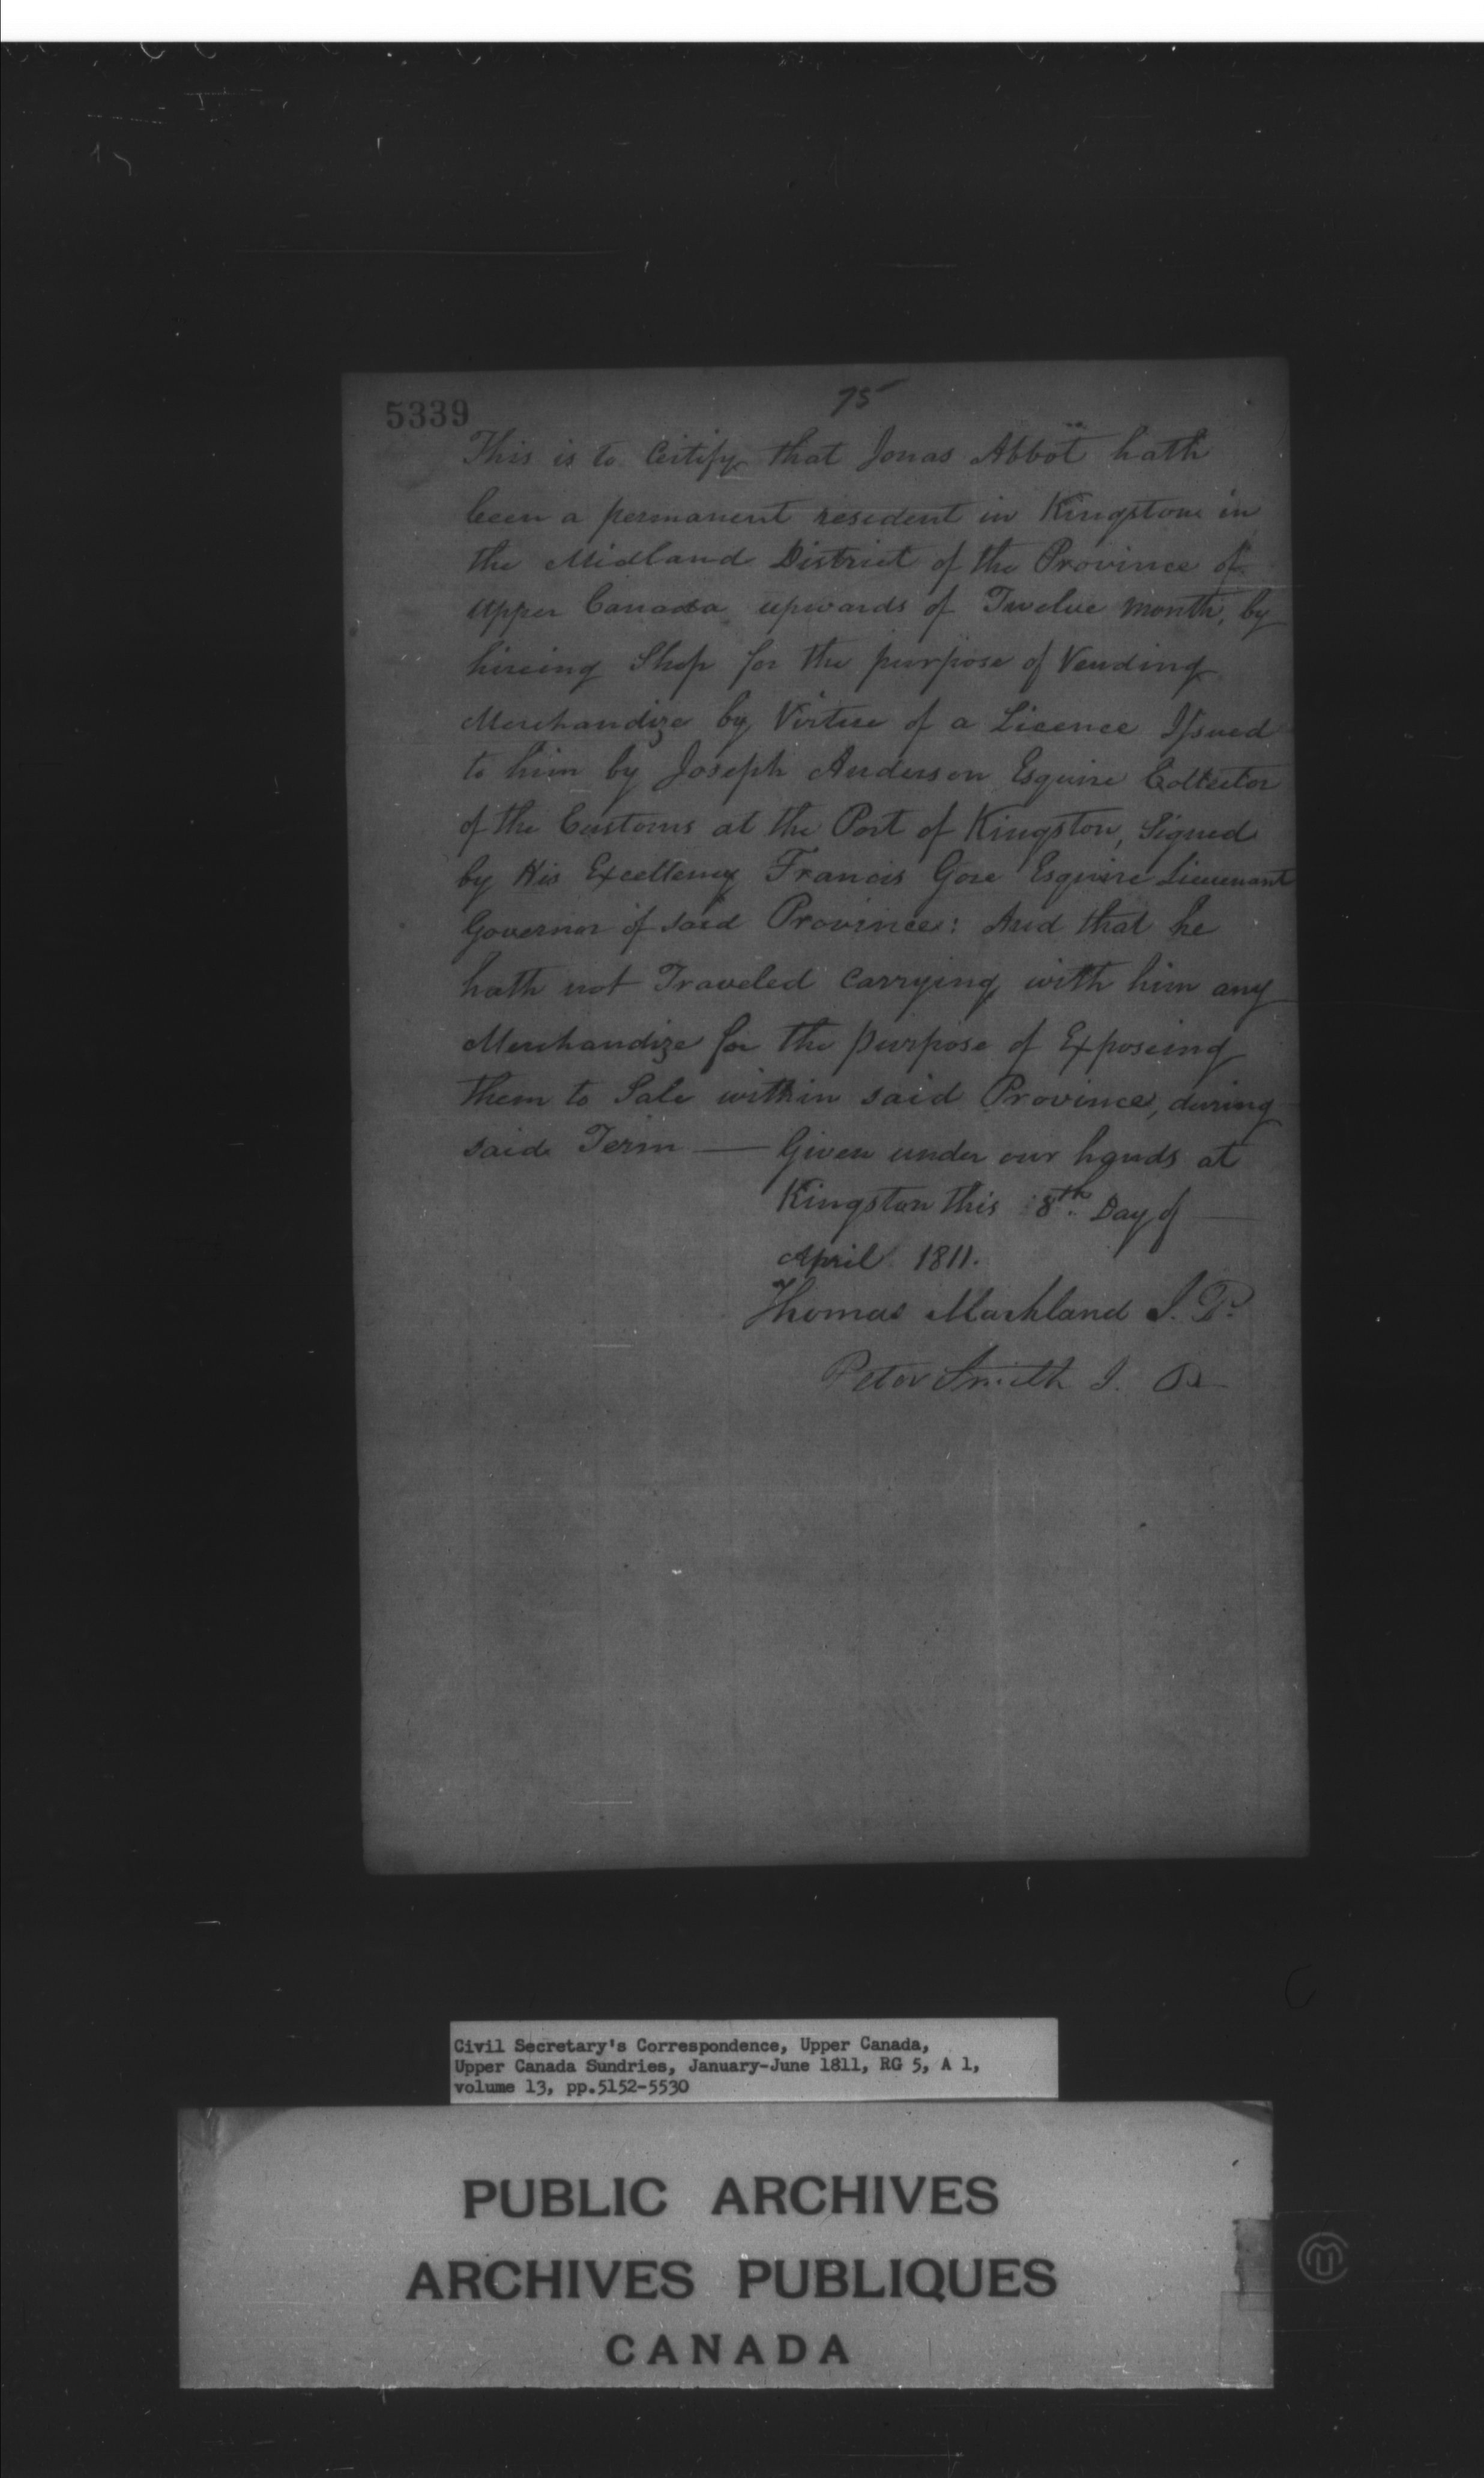 5339
75
This is to Certify that Jonas Abbot hath
been a permanent resedent in Kingston in
the Midland District of the Province of
Upper Canada upwards of Twelve Month, by
hireing Shop for the purpose of Vending
Merchandize by Virtue of a Licence Issued
to him by Joseph Anderson Esquire Collector
of the Customs at the Port of Kingston, Signed
by His Excellency Francis Gore Esquire Lieuenant
Governor of said Province: And that he
hath not Traveled carrying with him any
Merchandize for the purpose of Exposeing
them to Sale within said Province, during
said Term — Given under our hands at
Kingston this 8th. Day of —
April 1811.
Thomas Markland J. P.
Peter Smith J. P
Civil Secretary's Correspondence, Upper Canada,
Upper Canada Sundries, January-June 1811, RG 5, A 1,
volume 13, pp.5152-5530
PUBLIC ARCHIVES
ARCHIVES PUBLIQUES
CANADA